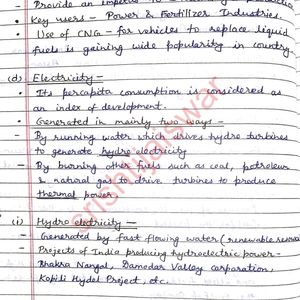 Provide an impetus to
• Key users - Power & Fertilizer Industries.
• Use of CNG - for vehicles to replace liquid
fuels is gaining wide popularity in country.
(d) Electricity -
• Its percapita consumption is considered as
an index of development.
• Generated in mainly two ways -
- By running water which drives hydro turbines
to generate hydro electricity
- By burning other fuels such as coal, petroleum
& natural gas to drive turbines to produce
thermal power.
(i) Hydro electricity -
- Generated by fast flowing water (renewable
- Projects of India producing hydroelectric power -
Bhakra Nangal, Damodar Valley corporation,
Kopili Hydel Project, etc.
srishtijaiswar